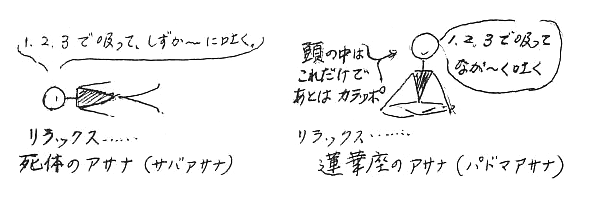 1. 2. 3 で吸って、しずか〜に吐く。
リラックス……
死体のアサナ(サバアサナ)
頭の中は
これだけで
あとは カラッポ
1. 2. 3 で吸って
なが〜く吐く
リラックス……
蓮華座のアサナ(パドマアサナ)